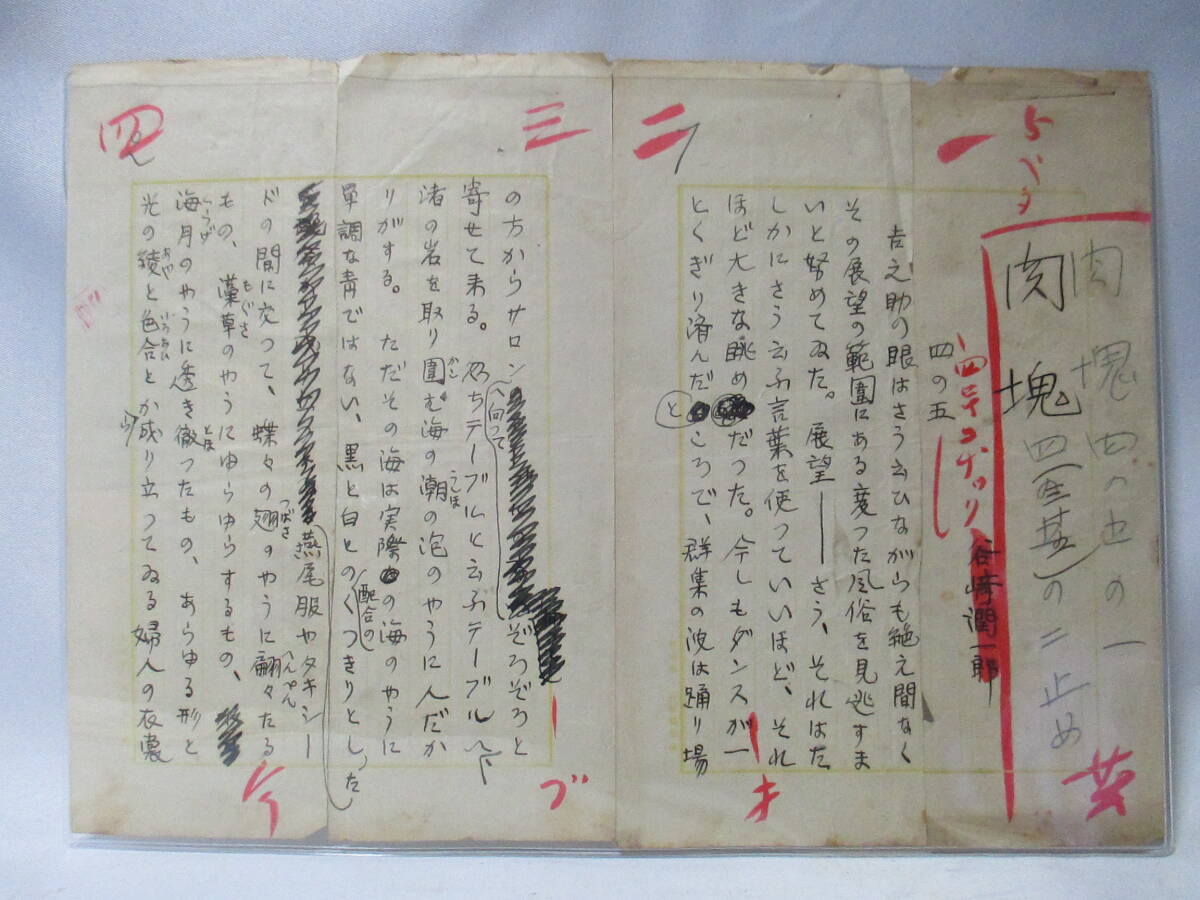 一
5ベタ
肉塊 四の五の一
肉塊 四(全基)の二止め
四の五
谷崎潤一郎
吉之助の眼はさう云ひながらも絶え間なく
その展望の範囲にある変つた風俗を見逃すま
いと努めてゐた。展望――さう、それはた
しかにさう云ふ言葉を使つていいほど、それ
ほど大きな眺めだつた。今しもダンスが一
とくぎり済んだところで、群集の波は踊り場
二
オ
三
の方からサロンへ向つてぞろぞろと
寄せて来る。乃ちテーブルと云ふテーブルへ、
渚の岩を取り囲む海の潮の泡のやうに人だか
りがする。ただその海は実際の海のやうに
単調な青ではない、黒と白との配合のくつきりとした
ブ
四
燕尾服やタキシー
ドの間に交つて、蝶々の翅のやうに翩々たる
もの、藻草のやうにゆらゆらするもの、
海月のやうに透き徹つたもの、あらゆる形と
光の綾と色合とから成り立つてゐる婦人の衣裳
ケ